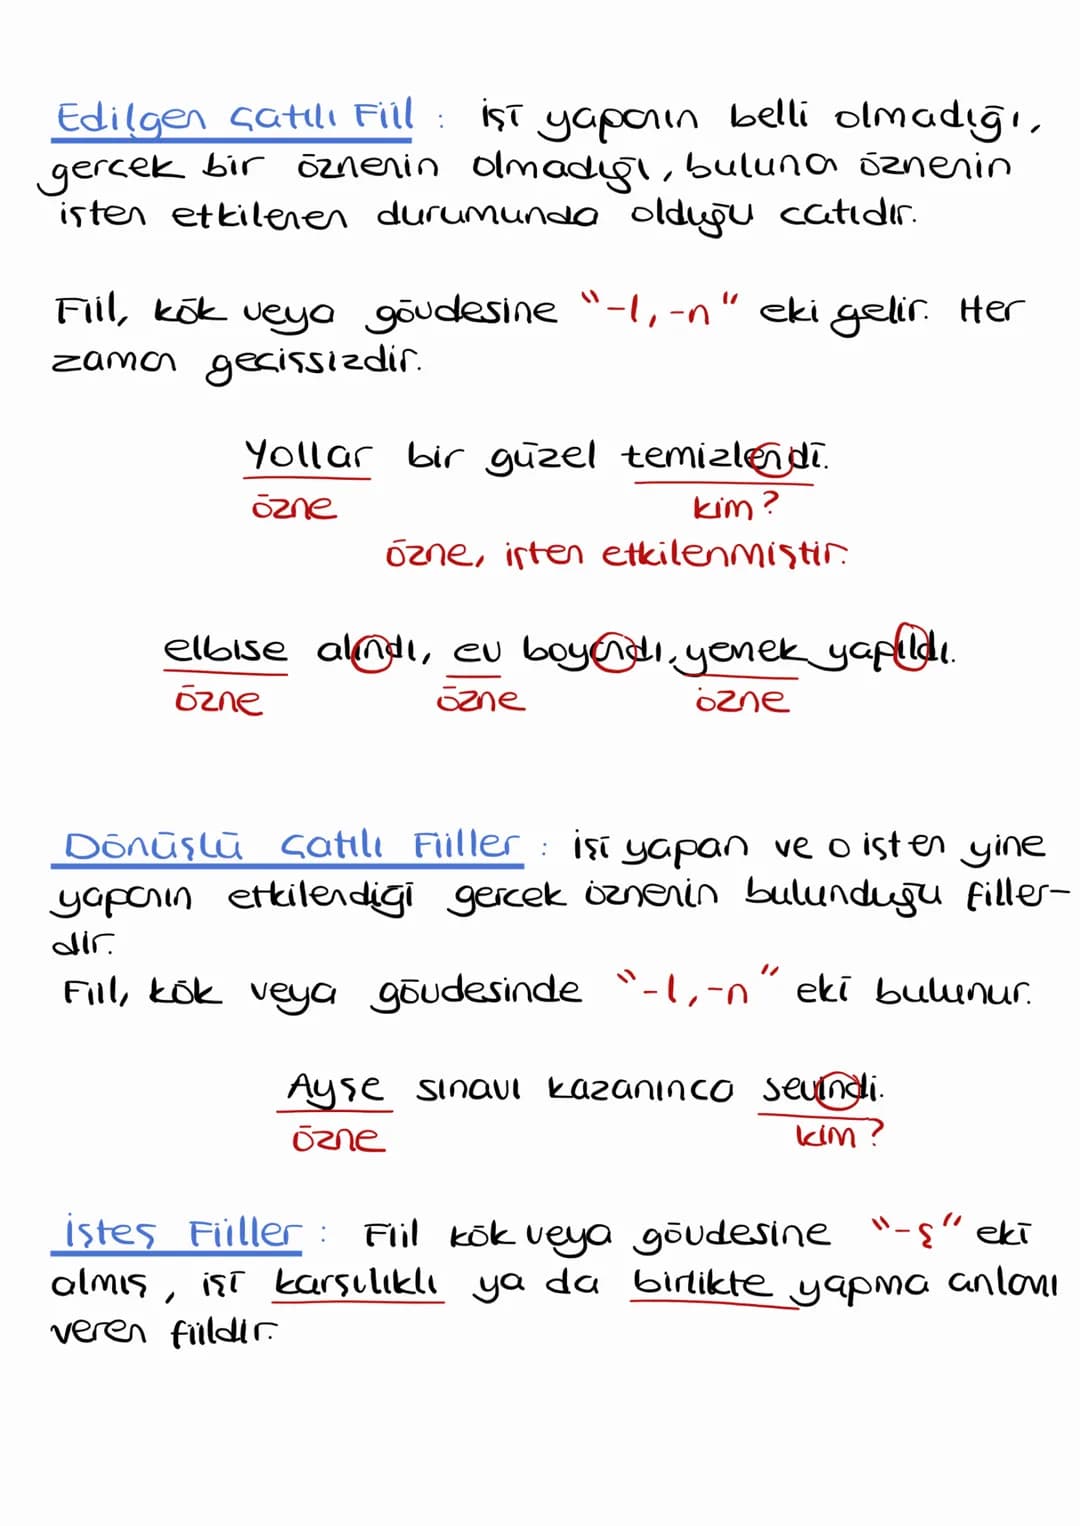 Edilgen Çatılı Fiil : işi yapanın belli olmadığı,
gerçek bir öznenin olmadığı, buluna öznenin
işten etkilenen durumunda olduğu çatıdır.
Fiil, kök veya gövdesine "-l, -n" eki gelir. Her
zaman geçişsizdir.
Yollar bir güzel temizlendi.
özne kim?
Özne, işten etkilenmiştir.
elbise alındı, ev boyandı, yenek yapıldı.
özne özne özne
Dönüşlü Çatılı Fiiller : işi yapan ve o işten yine
yapanın etkilendiği gerçek öznenin bulunduğu filler-
dir.
Fiil, kök veya gövdesinde "-l, -n" eki bulunur.
Ayşe sınavı kazanınca sevindi.
özne kim?
İşteş Fiiller : Fiil kök veya gövdesine "-ş" eki
almış, işi karşılıklı ya da birlikte yapma anlamı
veren fiildir.